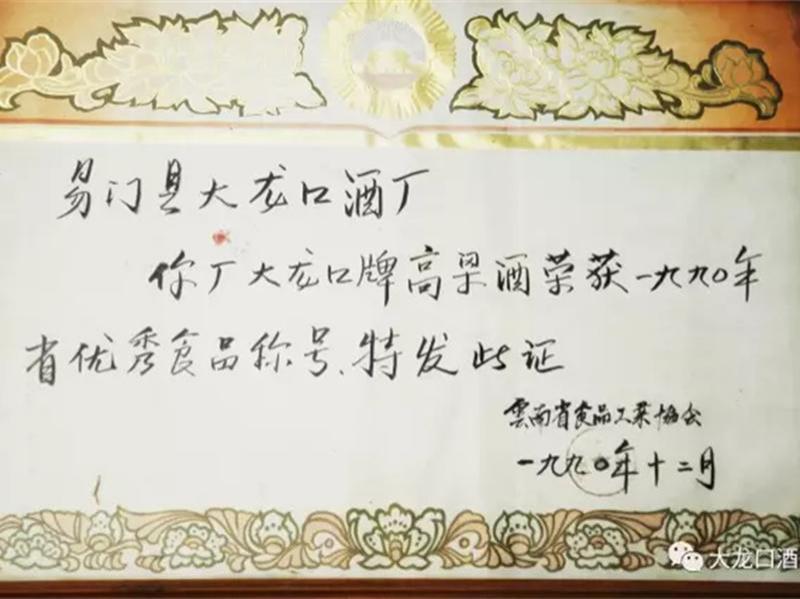 易门县大龙口酒厂
你厂大龙口牌高粱酒荣获一九九〇年
省优秀食品称号、特发此证
雲南省食品工业协会
一九九〇年十二月
大龙口酒